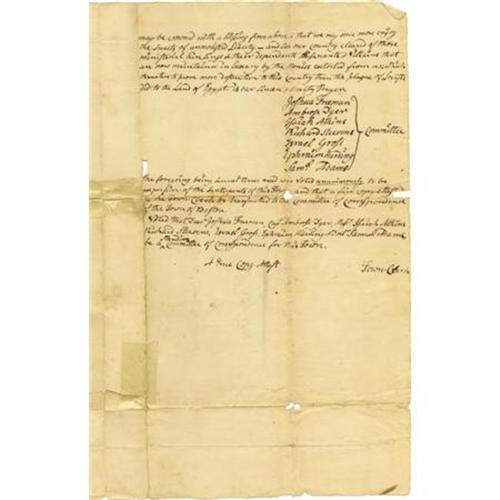 may be crowned with a blessing from above; that we may once more enjoy
the Sweets of unmolested Liberty — and see our Country cleared of those
ministerial hirelings & their dependents that
are now maintained in luxury by the Monies extorted from us, which
threaten to prove more destructive to this Country than the plague of
did to the Land of Egypt is our Sincere & hearty Prayer
Joshua Freeman
Ambrose Dyer
Isaiah Atkins
Richard Stevens
Israel Gross
Ephraim Harding
Saml. Adams
Committee
the foregoing being several times read was voted unanimously to be
expressive of the Sentiments of this Town and that a fair copy attested
by the Town Clerk be transmitted to the Committee of Correspondence
of the Town of Boston.
Voted that Deac Joshua Freeman Capt Ambrose Dyer, Isaiah Atkins
Richard Stevens, Israel Gross, Ephraim Harding & Samuel Adams
be a Standing Committee of Correspondence for this Town.
A True Copy Attest
Town Clerk